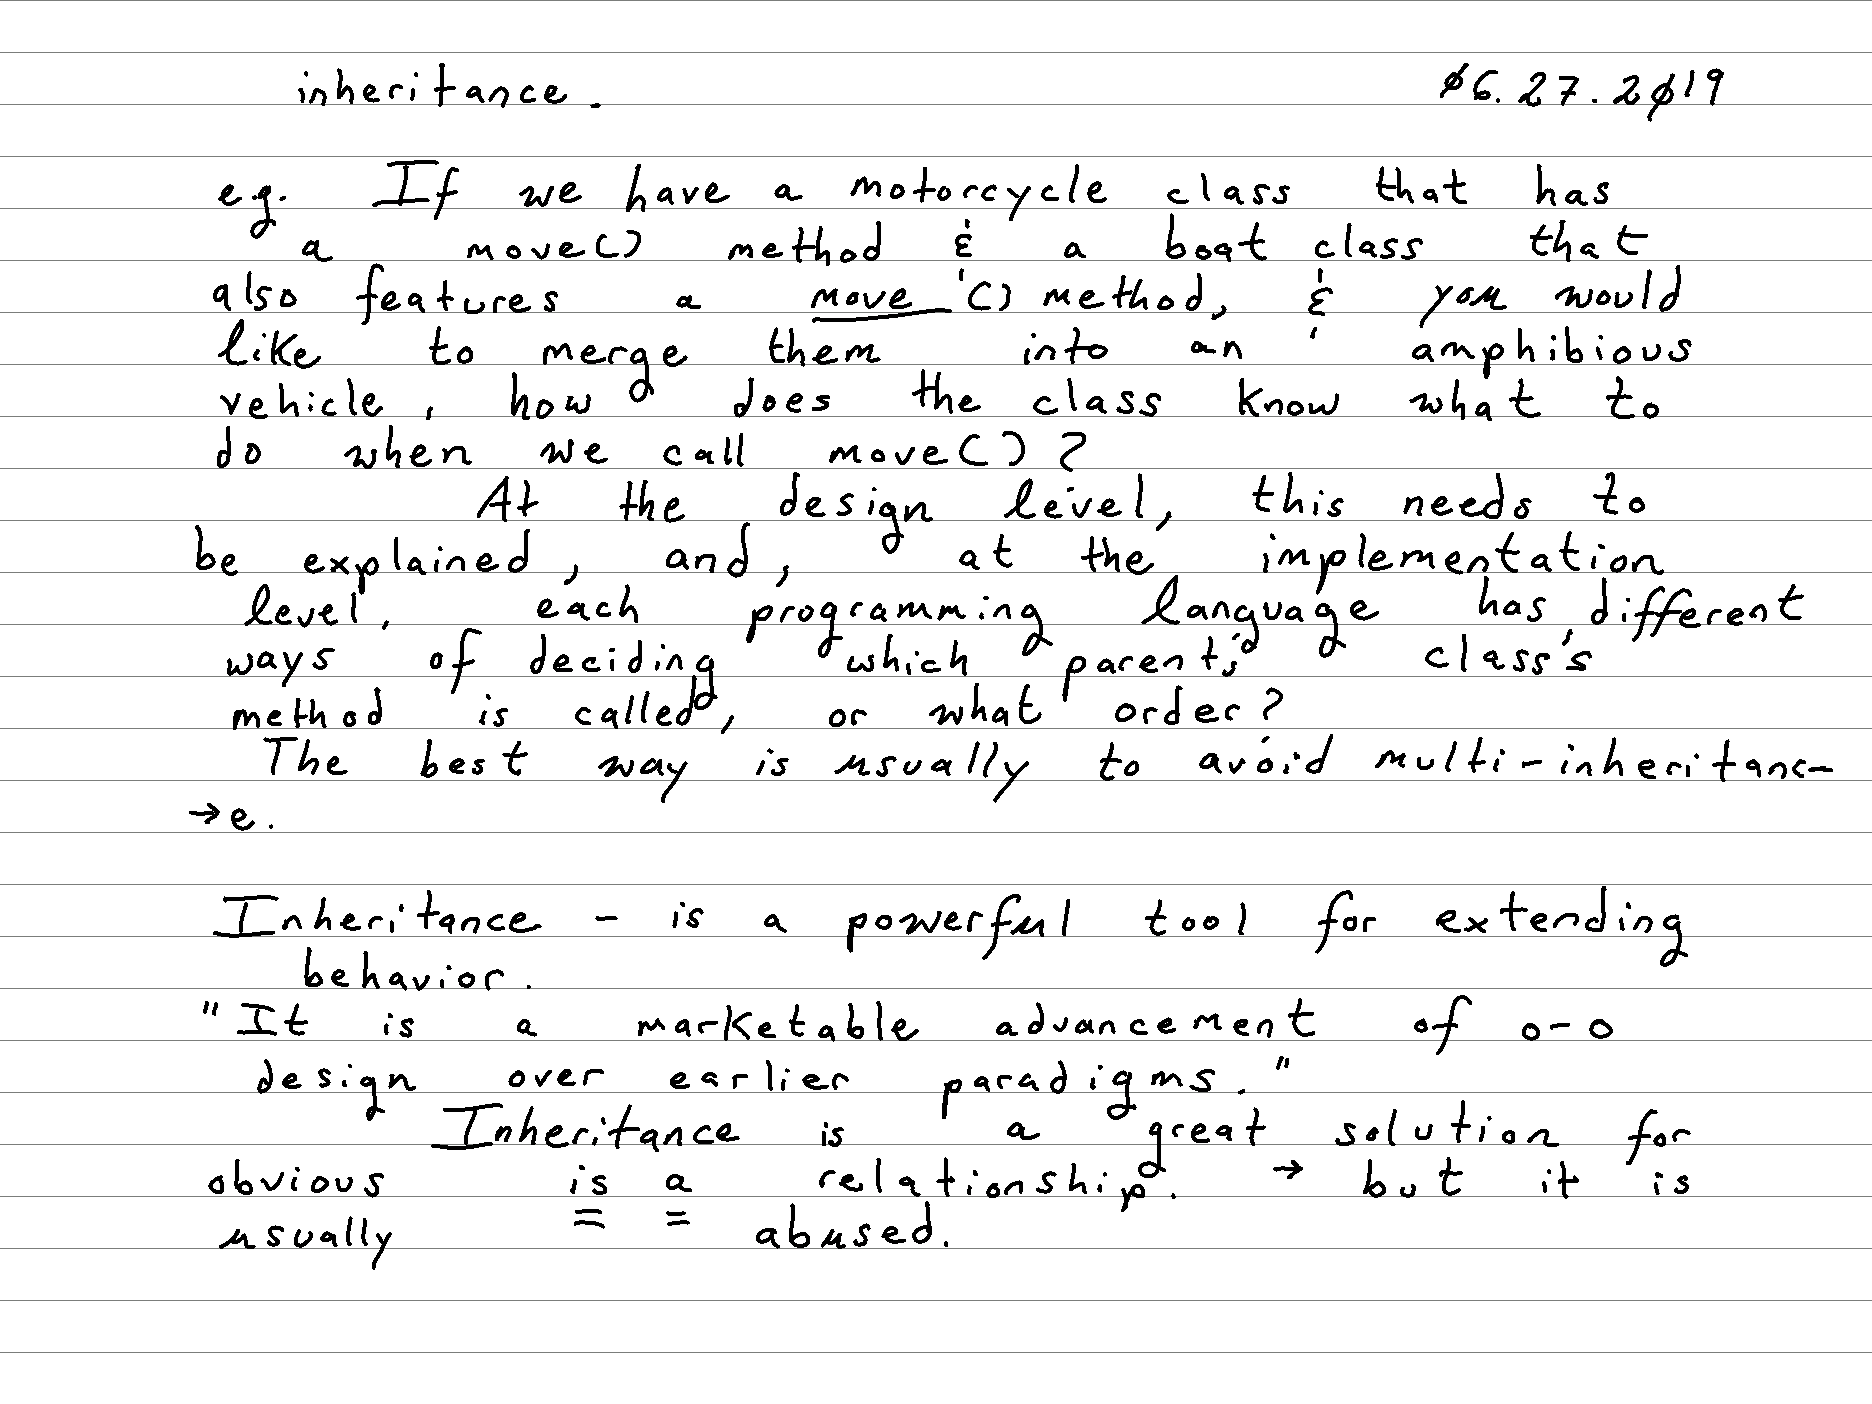 inheritance. 06.27.2019
e.g. If we have a motorcycle class that has
a move() method & a boat class that
also features a move() method, & you would
like to merge them into an amphibious
vehicle, how does the class know what to
do when we call move()?
At the design level, this needs to
be explained, and, at the implementation
level, each programming language has different
ways of deciding which parent's class's
method is called, or what order?
The best way is usually to avoid multi-inheritanc-
→e.
Inheritance - is a powerful tool for extending
behavior.
"It is a marketable advancement of o-o
design over earlier paradigms."
Inheritance is a great solution for
obvious is a relationship. → but it is
usually abused.